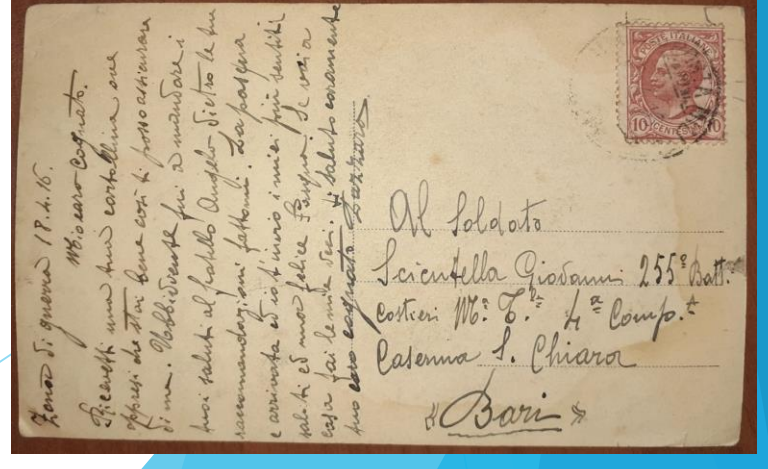 Zona di guerra 18.4.16.
Mio caro Cognato.
Ricevetti una tua cartollina ove
appresi che stai bene così ti posso assicurare
di me. Ubbidiente fui a mandare i
tuoi saluti al fratello Angelo dietro le tue
raccomandazioni fattomi. La pasqua
è arrivata ed io t'invio i miei più sentiti
saluti ed una felice Pasqua. Se vai a
casa fai le mie veci. Ti saluto caramente
tuo caro cognato Lazzaro
POSTE ITALIANE
10 CENTESIMI 10
Al Soldato
Scientella Giovanni 255º Batt.
Costieri M.ª T.le 4ª Comp.
Caserma S. Chiara
"Bari"